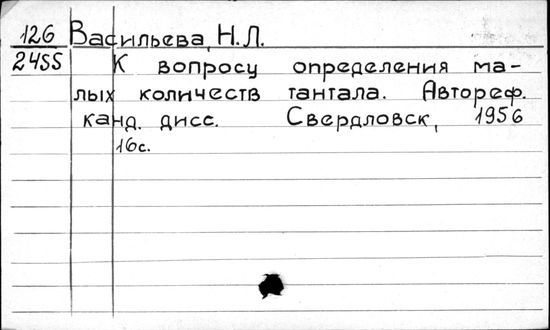 126 Васильева, Н.Л.
2455 К вопросу определения ма-
лых количеств тантала. Автореф.
канд. дисс. Свердловск, 1956
16с.